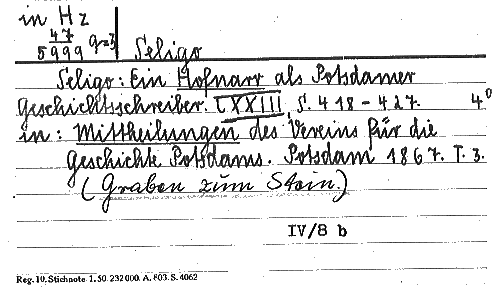 in Hz
47
5999 9=3
Seligo
Seligo: Ein Hofnarr als Potsdamer
Geschichtsschreiber. LXXIII, S. 418-427. 4°
in: Mittheilungen des Vereins für die
Geschichte Potsdams. Potsdam 1867. T. 3.
(Graben zum Stein.)
IV/8 b
Reg. 10. Stichnote 1. 50. 232000. A. 803. S. 4062